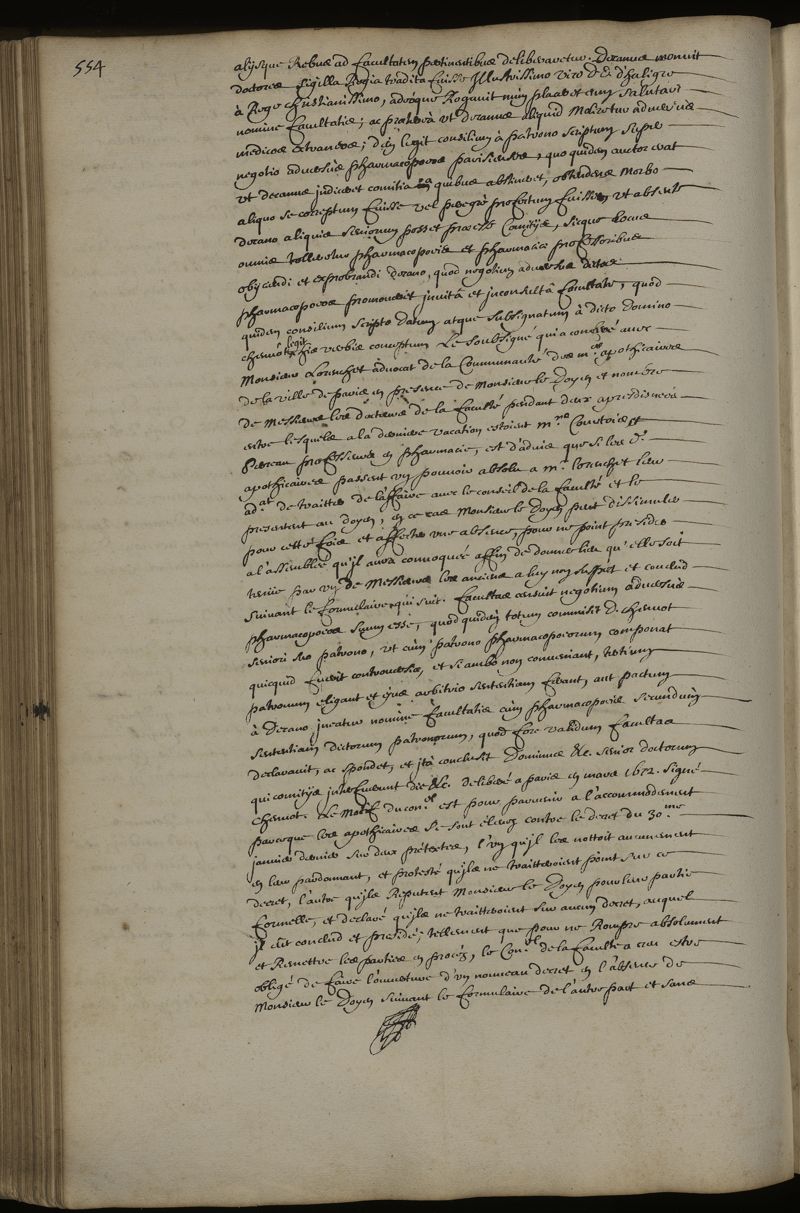 554
alijsque Rebus ad facultatem pertinentibus deliberaretur. Decanus monuit
doctores sigilla Regia tradita fuisse Illustrissimo viro D. D. d'haligre
à Rege christianissimo, adeoque Rogavit num placeret eum salutari
nomine facultatis; ac praeterea ut decanus aliquid moliretur adversus
medicos extraneos; dein legit consilium à patrono scriptum super
negotio adversus pharmacopoeos parisienses, quo quidem auctor erat
ut decanus indiceret comitia à quibus abstineret, obtendens morbo
aliquo se correptum fuisse vel peregrè profectum fuisse ut absente
decano aliquis seniorum posset praeesse Comitijs, sicque locus
omnis tolleretur pharmacopoeis et pharmaciae professoribus
obijciendi et exprobrandi decano, quod negotium adversus dictos
pharmacopoeos promoverit invitâ et inconsultâ facultate, quod
quidem consilium scripto datum atque subsignatum à dicto domino
chenuot legit his verbis conceptum Le soubsigné qui a conferé avec
Monsieur Lorenchet advocat de la Communauté des m.es apothicaires
de la ville de paris en presence de Monsieur le Doyen et nombre
de Messieurs les docteurs de la faculté pendant deux apresdisnées
entre lesquels a la derniere vacation estoient m.re Courtois et
Perreau professeurs en pharmacie, est d'advis que si les d.
apothicaires passent un pouvoir absolu a m.r lorenchet leur
ad.at de traitter de l'affaire avec le conseil de la faculté et le
presentent au doyen, en ce cas Monsieur le Doyen peut dissimuler
pour cette fois et affecter une absence, pour ne point presider
a l'assemblée qu'il aura convoquée affin de donner lieu qu'elle soit
tenue par un de Messieurs les anciens a luy non suspect et conclud
suivant le formulaire qui suit. facultas censuit negotium adversus
pharmacopoeos suum esse, quod quidem totum commisit D. chenuot
seniori suo patrono, ut cum patrono pharmacopoeorum componat
quicquid fuerit controversiae, et si ambo non conveniant, tertium
patronum eligant et ejus arbitrio sententiam ferant, aut pactum
à Decano ineatur nomine facultatis cum pharmacopoeis secundum
sententiam dictorum patronorum, quod fore validum facultas
declaravit, ac spondet, et ità conclusit Dominus &c. senior doctorum
qui comitijs interfuerunt die &c. deliberé a paris en mars 1672. signé
chenuot. Le Motif du con.el est pour parvenir a l'accommodement
parceque les apothicaires se sont élevez contre le decret du 30.me
janvier dernier sur deux prétextes, l'un qu'il les nottoit aucunement
en leur pardonnant, et protesté qu'ils ne traitteroient point sur ce
decret, l'autre qu'ils Reputent Monsieur le Doyen pour leur partie
formelle, et declaré qu'ils ne traitteroient sur aucun decret, auquel
il eût conclud et presidé; tellement que pour ne Rompre absolument
et Remettre les parties en procéz, le Con.el de la faculté a creu estre
obligé de faire l'ouverture d'un nouveau decret en l'absence de
Monsieur le Doyen suivant le formulaire de l'autre part et sans